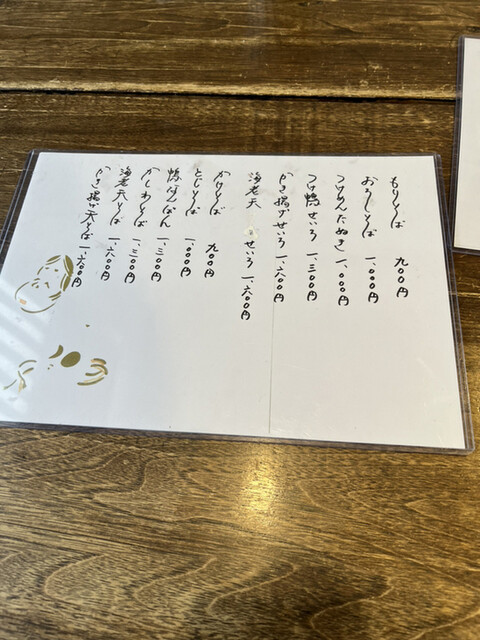 もりそば 九〇〇円
おろしそば 一、〇〇〇円
つけめんたぬき 一、〇〇〇円
つけ鴨せいろ 一、三〇〇円
かき揚げせいろ 一、六〇〇円
海老天せいろ 一、六〇〇円
かけそば 九〇〇円
とじそば 一、〇〇〇円
鴨なんばん 一、三〇〇円
かしわそば 一、三〇〇円
海老天そば 一、六〇〇円
かき揚げ天そば 一、六〇〇円